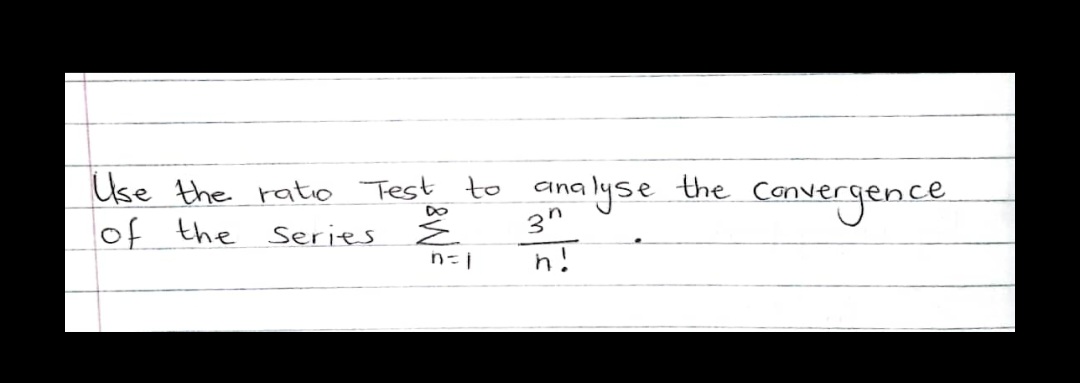 Use the ratio Test to analyse the convergence
of the series ∞ Σ n=1 3ⁿ / n! .